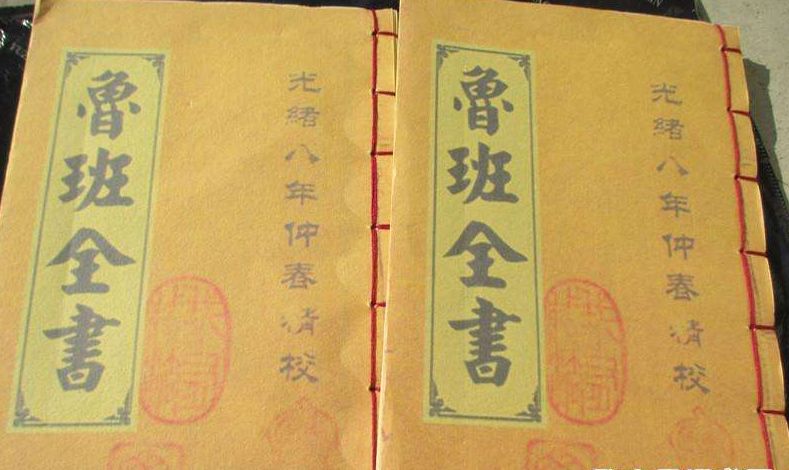 光緒八年仲春清校
魯班全書
光緒八年仲春清校
魯班全書